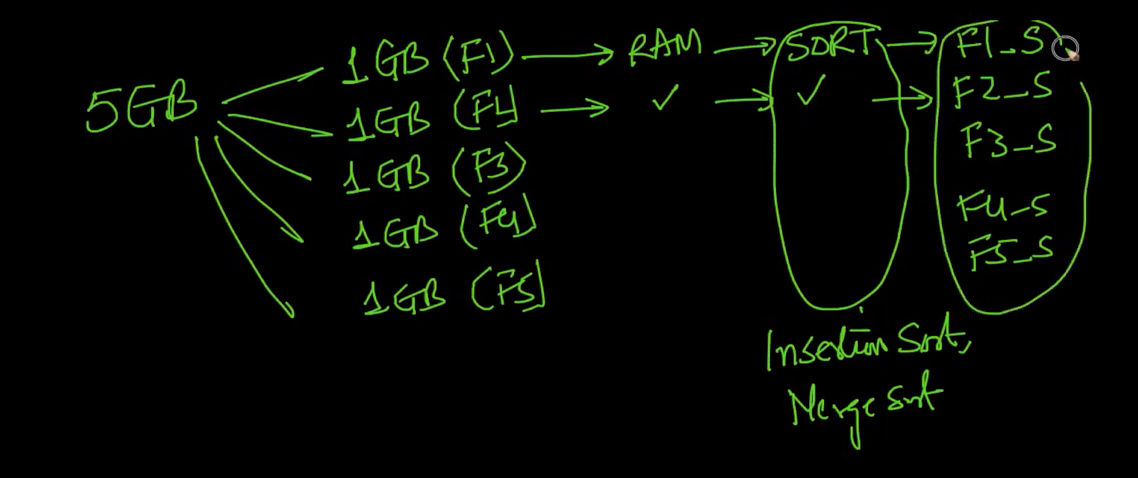 5GB
1GB (F1) RAM SORT F1_S
1GB (F4 ✓ ✓ F2_S
1GB (F3) F3_S
1GB (F4] F4_S
1GB (F5] F5_S
Insertion Sort,
Merge Sort